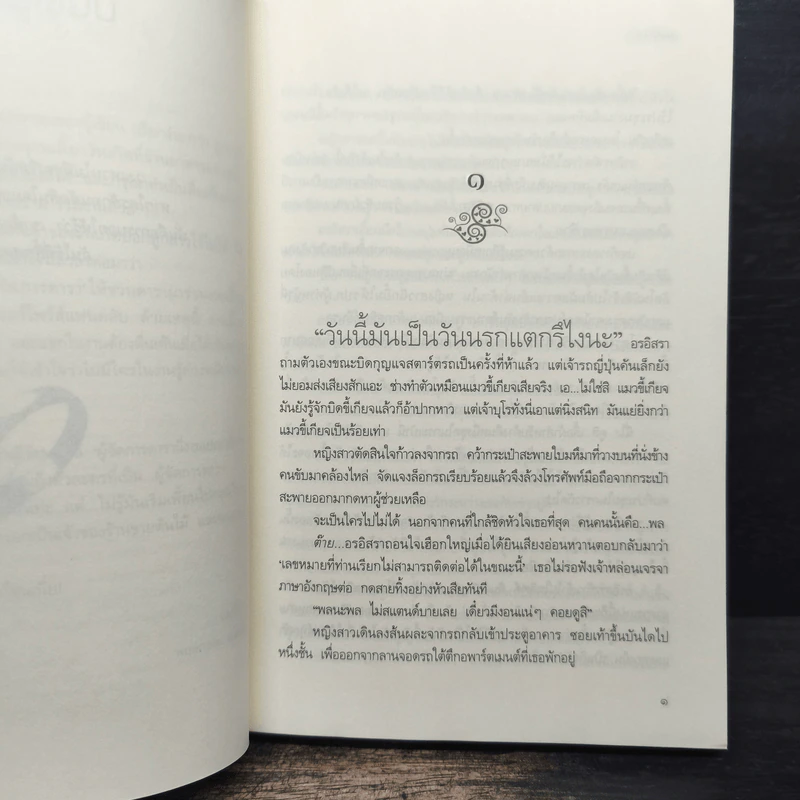 ๑
“วันนี้มันเป็นวันนรกแตกรึไงนะ” อรอิสรา
ถามตัวเองขณะบิดกุญแจสตาร์ตรถเป็นครั้งที่ห้าแล้ว แต่เจ้ารถญี่ปุ่นคันเล็กยัง
ไม่ยอมส่งเสียงสักแอะ ช่างทำตัวเหมือนแมวขี้เกียจเสียจริง เอ...ไม่ใช่สิ แมวขี้เกียจ
มันยังรู้จักบิดขี้เกียจแล้วก็อ้าปากหาว แต่เจ้าบุโรทั่งนี่เอาแต่นิ่งสนิท มันแย่ยิ่งกว่า
แมวขี้เกียจเป็นร้อยเท่า
หญิงสาวตัดสินใจก้าวลงจากรถ คว้ากระเป๋าสะพายใบมหึมาที่วางบนที่นั่งข้าง
คนขับมาคล้องไหล่ จัดแจงล็อกรถเรียบร้อยแล้วจึงล้วงโทรศัพท์มือถือจากกระเป๋า
สะพายออกมากดหาผู้ช่วยเหลือ
จะเป็นใครไปไม่ได้ นอกจากคนที่ใกล้ชิดหัวใจเธอที่สุด คนคนนั้นคือ...พล
ต๊าย...อรอิสราถอนใจเฮือกใหญ่เมื่อได้ยินเสียงอ่อนหวานตอบกลับมาว่า
‘เลขหมายที่ท่านเรียกไม่สามารถติดต่อได้ในขณะนี้’ เธอไม่รอฟังเจ้าหล่อนเจรจา
ภาษาอังกฤษต่อ กดสายทิ้งอย่างหัวเสียทันที
“พลนะพล ไม่สแตนด์บายเลย เดี๋ยวมีงอนแน่ๆ คอยดูสิ”
หญิงสาวเดินลงส้นผละจากรถกลับเข้าประตูอาคาร ซอยเท้าขึ้นบันไดไป
หนึ่งชั้น เพื่อออกจากลานจอดรถใต้ตึกอพาร์ตเมนต์ที่เธอพักอยู่
๑